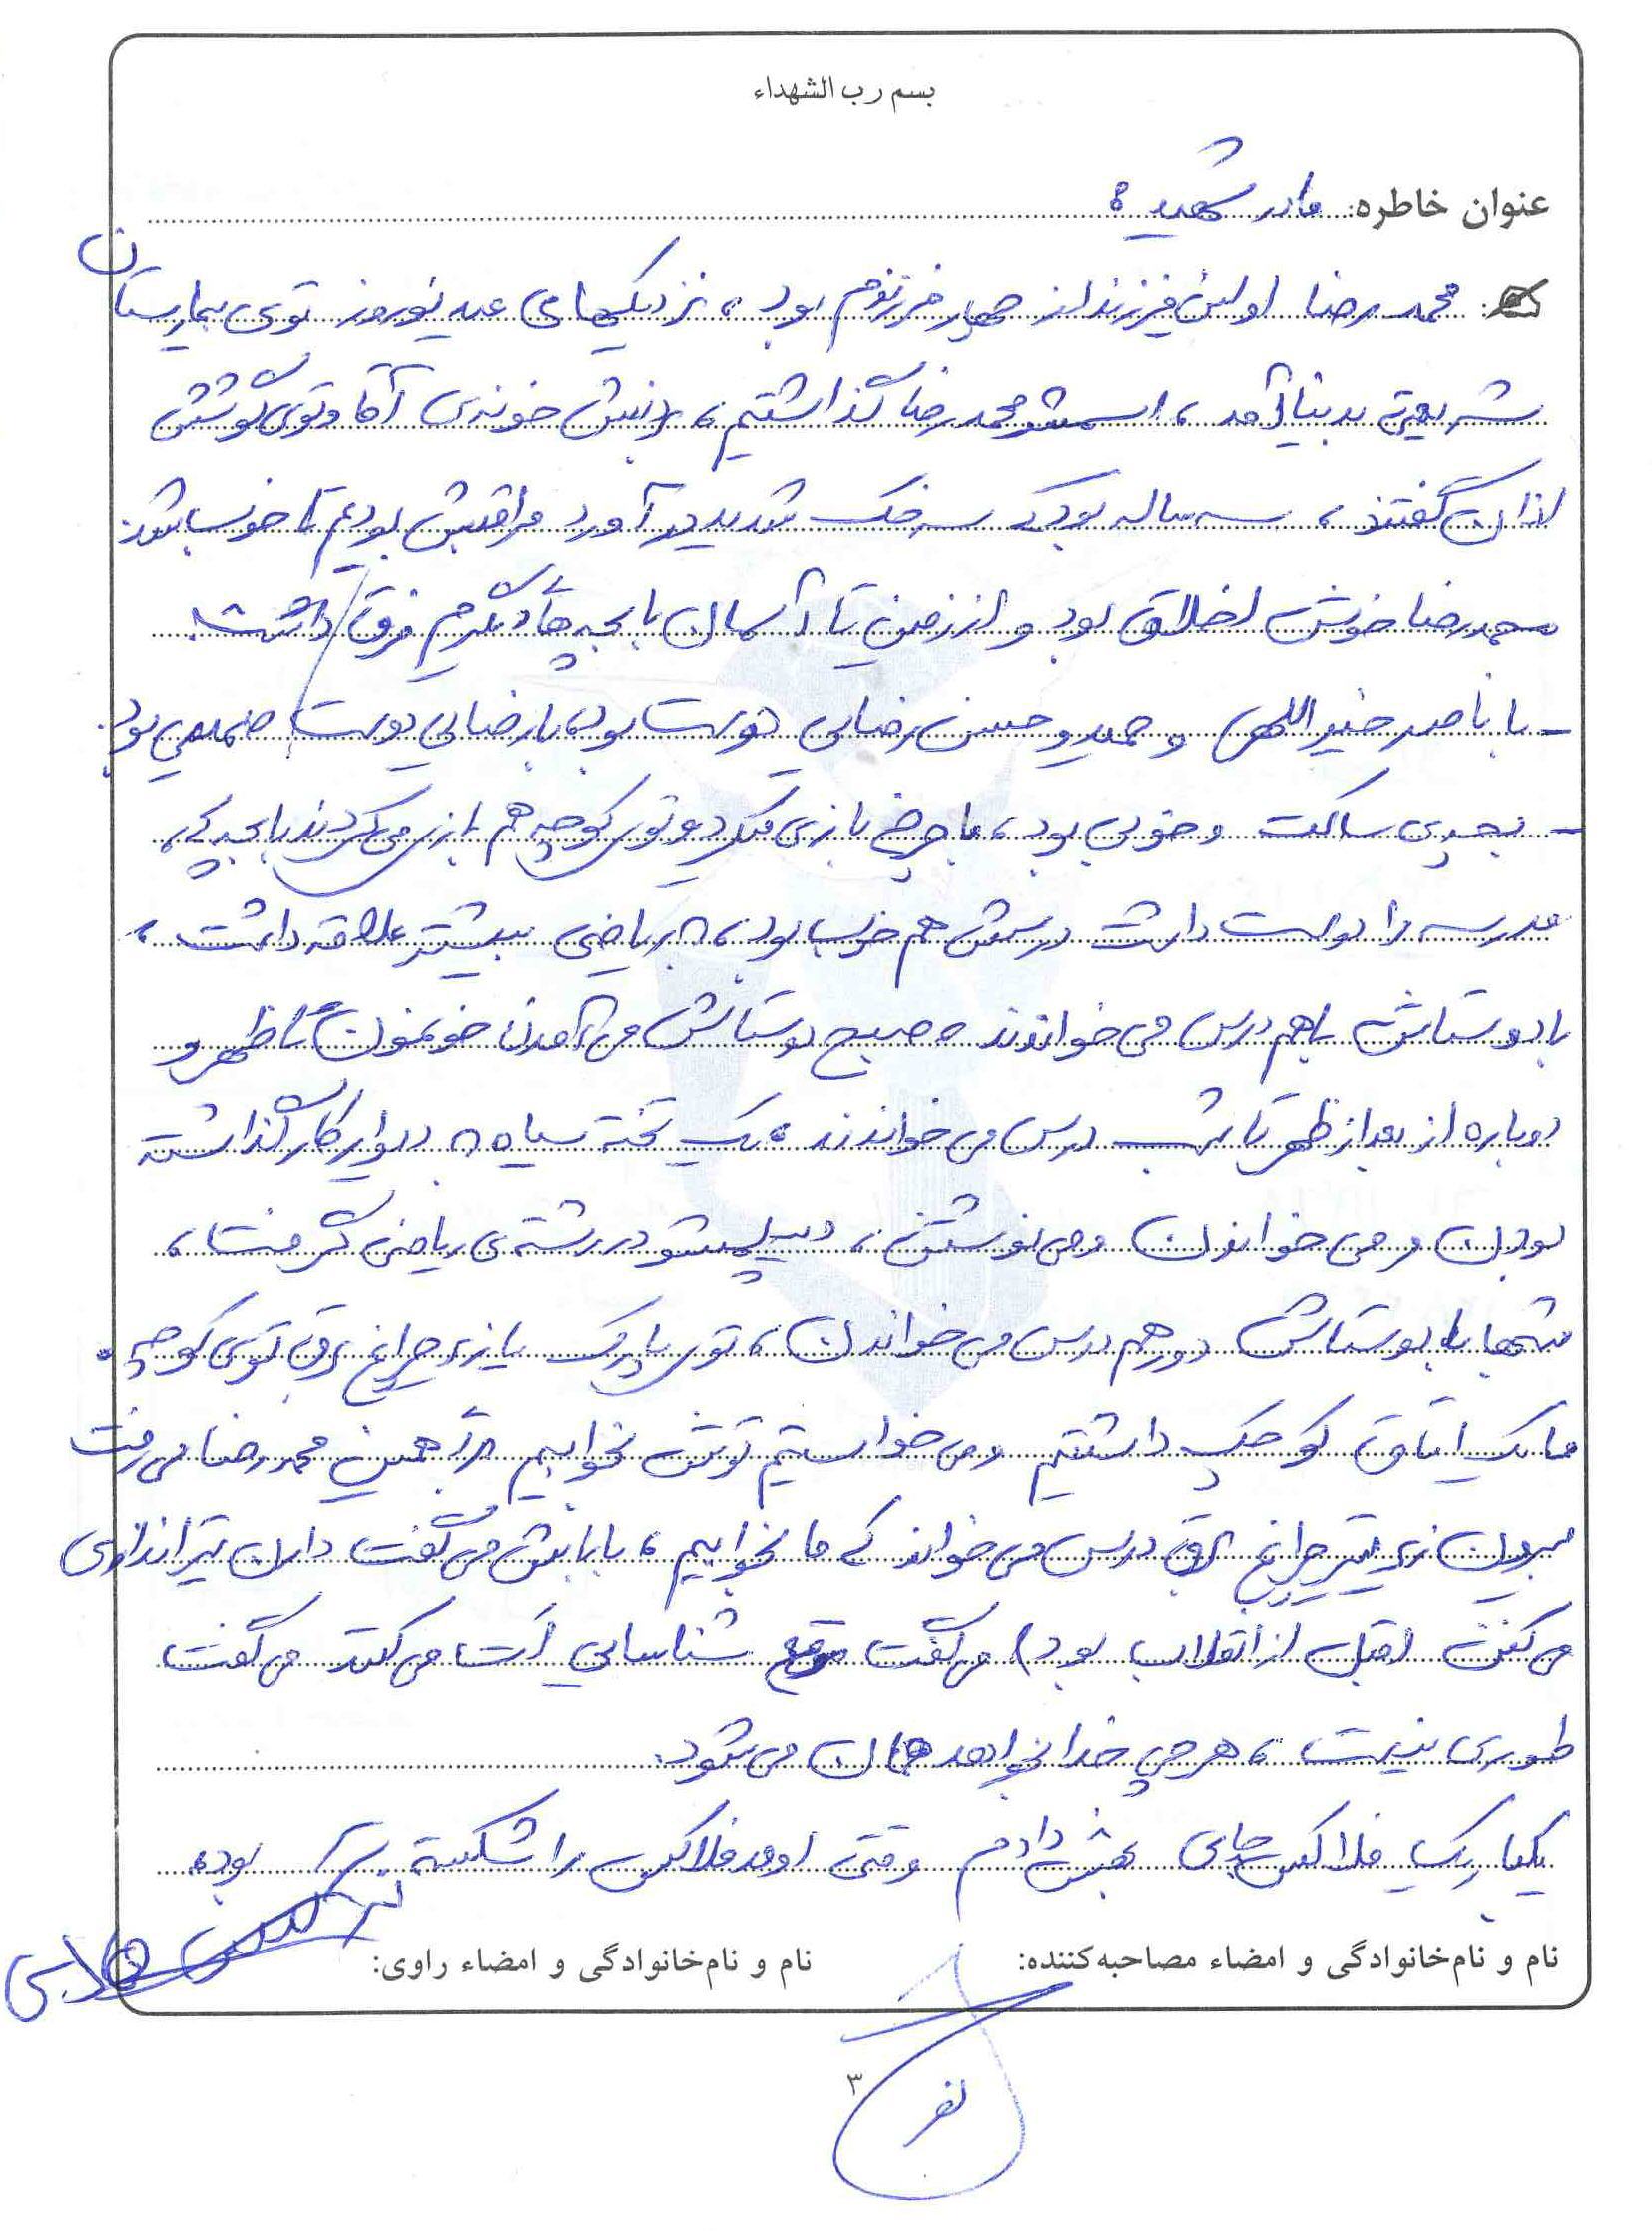 بسم رب الشهداء
عنوان خاطره: مادر شهید
محمد رضا اولین فرزند از چهار فرزندم بود، نزدیکهای عید نوروز توی بیمارستان
شریعتی بدنیا آمد، اسمشو محمد رضا گذاشتیم، خوندی آقا و توی گوشش
اذان گفتند، سه ساله بود که سرخک شدید در آورد مراقبش بودیم تا خوب شد.
محمد رضا خوش اخلاق بود و از زمین تا آسمان با بچه های دیگرم فرق داشت.
- با ناصر خیراللهی و حمید و حسن رضایی دوست بود، با رضایی دوست صمیمی بود.
- بچه‌ی ساکت و خوبی بود، با چرخ بازی میکرد و توی کوچه هم بازی می کردند با بچه ها،
مدرسه را دوست داشت درسش هم خوب بود، به ریاضی بیشتر علاقه داشت،
با دوستاش باهم درس می خواندند، صبح دوستانش می آمدن خونمون تا ظهر و
دوباره از بعد از ظهر تا شب درس می خواندند، یک تخته سیاه به دیوار کار گذاشته
بودن و می خواندن و می نوشتن، دیپلمشو در رشته ی ریاضی گرفت،
شبها با دوستاش دور هم درس می خواندن، توی پارک یا زیر چراغ برق توی کوچه.
ما یک اتاق کوچک داشتیم و می خواستیم توش بخوابیم برا همین محمد رضا می رفت
بیرون زیر تیر چراغ برق درس می خواند که ما بخوابیم، باباش می گفت دارن تیراندازی
می کنن (قبل از انقلاب بود) می گفت شناسایی ات می کنند می گفت
طوری نیست، هر چی خدا بخواهد همان می شود.
یکبار یک فلاکس چای بهش دادم وقتی اومد فلاکس را شکسته بود،
نام و نام‌خانوادگی و امضاء مصاحبه‌کننده:
نام و نام‌خانوادگی و امضاء راوی:
۳